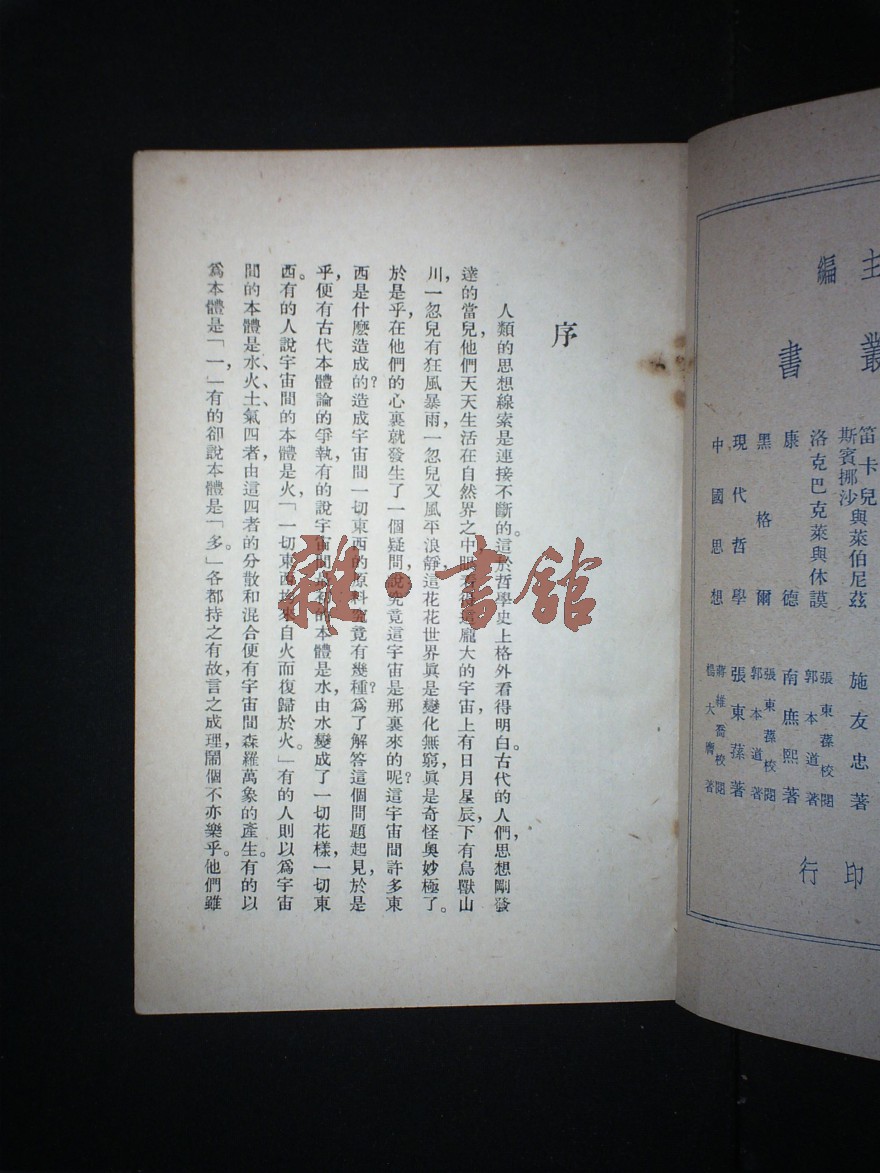 主編
叢書
笛卡兒斯賓挪沙與萊伯尼玆 施友忠著
洛克巴克萊與休謨 張東蓀校閱 郭本道著
康德 南庶熙著
黑格爾 張東蓀校閱 郭本道著
現代哲學 張東蓀著
中國思想 蔣維喬校閱 楊大膺著
印行
序
人類的思想線索是連接不斷的。這於哲學史上格外看得明白。古代的人們,思想剛發
達的當兒,他們天天生活在自然界之中,眼看得這龐大的宇宙,上有日月星辰,下有鳥獸山
川,一忽兒有狂風暴雨,一忽兒又風平浪靜,這花花世界眞是變化無窮,眞是奇怪奧妙極了。
於是乎,在他們的心裏就發生了一個疑問,說究竟這宇宙是那裏來的呢?這宇宙間許多東
西是什麽造成的?造成宇宙間一切東西的原料究竟有幾種?爲了解答這個問題起見,於是
乎,便有古代本體論的爭執,有的說宇宙間最初的本體是水,由水變成了一切花樣,一切東
西。有的人說宇宙間的本體是火,「一切東西皆來自火而復歸於火。」有的人則以爲宇宙
間的本體是水、火、土、氣四者,由這四者的分散和混合便有宇宙間森羅萬象的產生。有的以
爲本體是「一,」有的卻說本體是「多。」各都持之有故,言之成理,鬧個不亦樂乎。他們雖
雜·書館